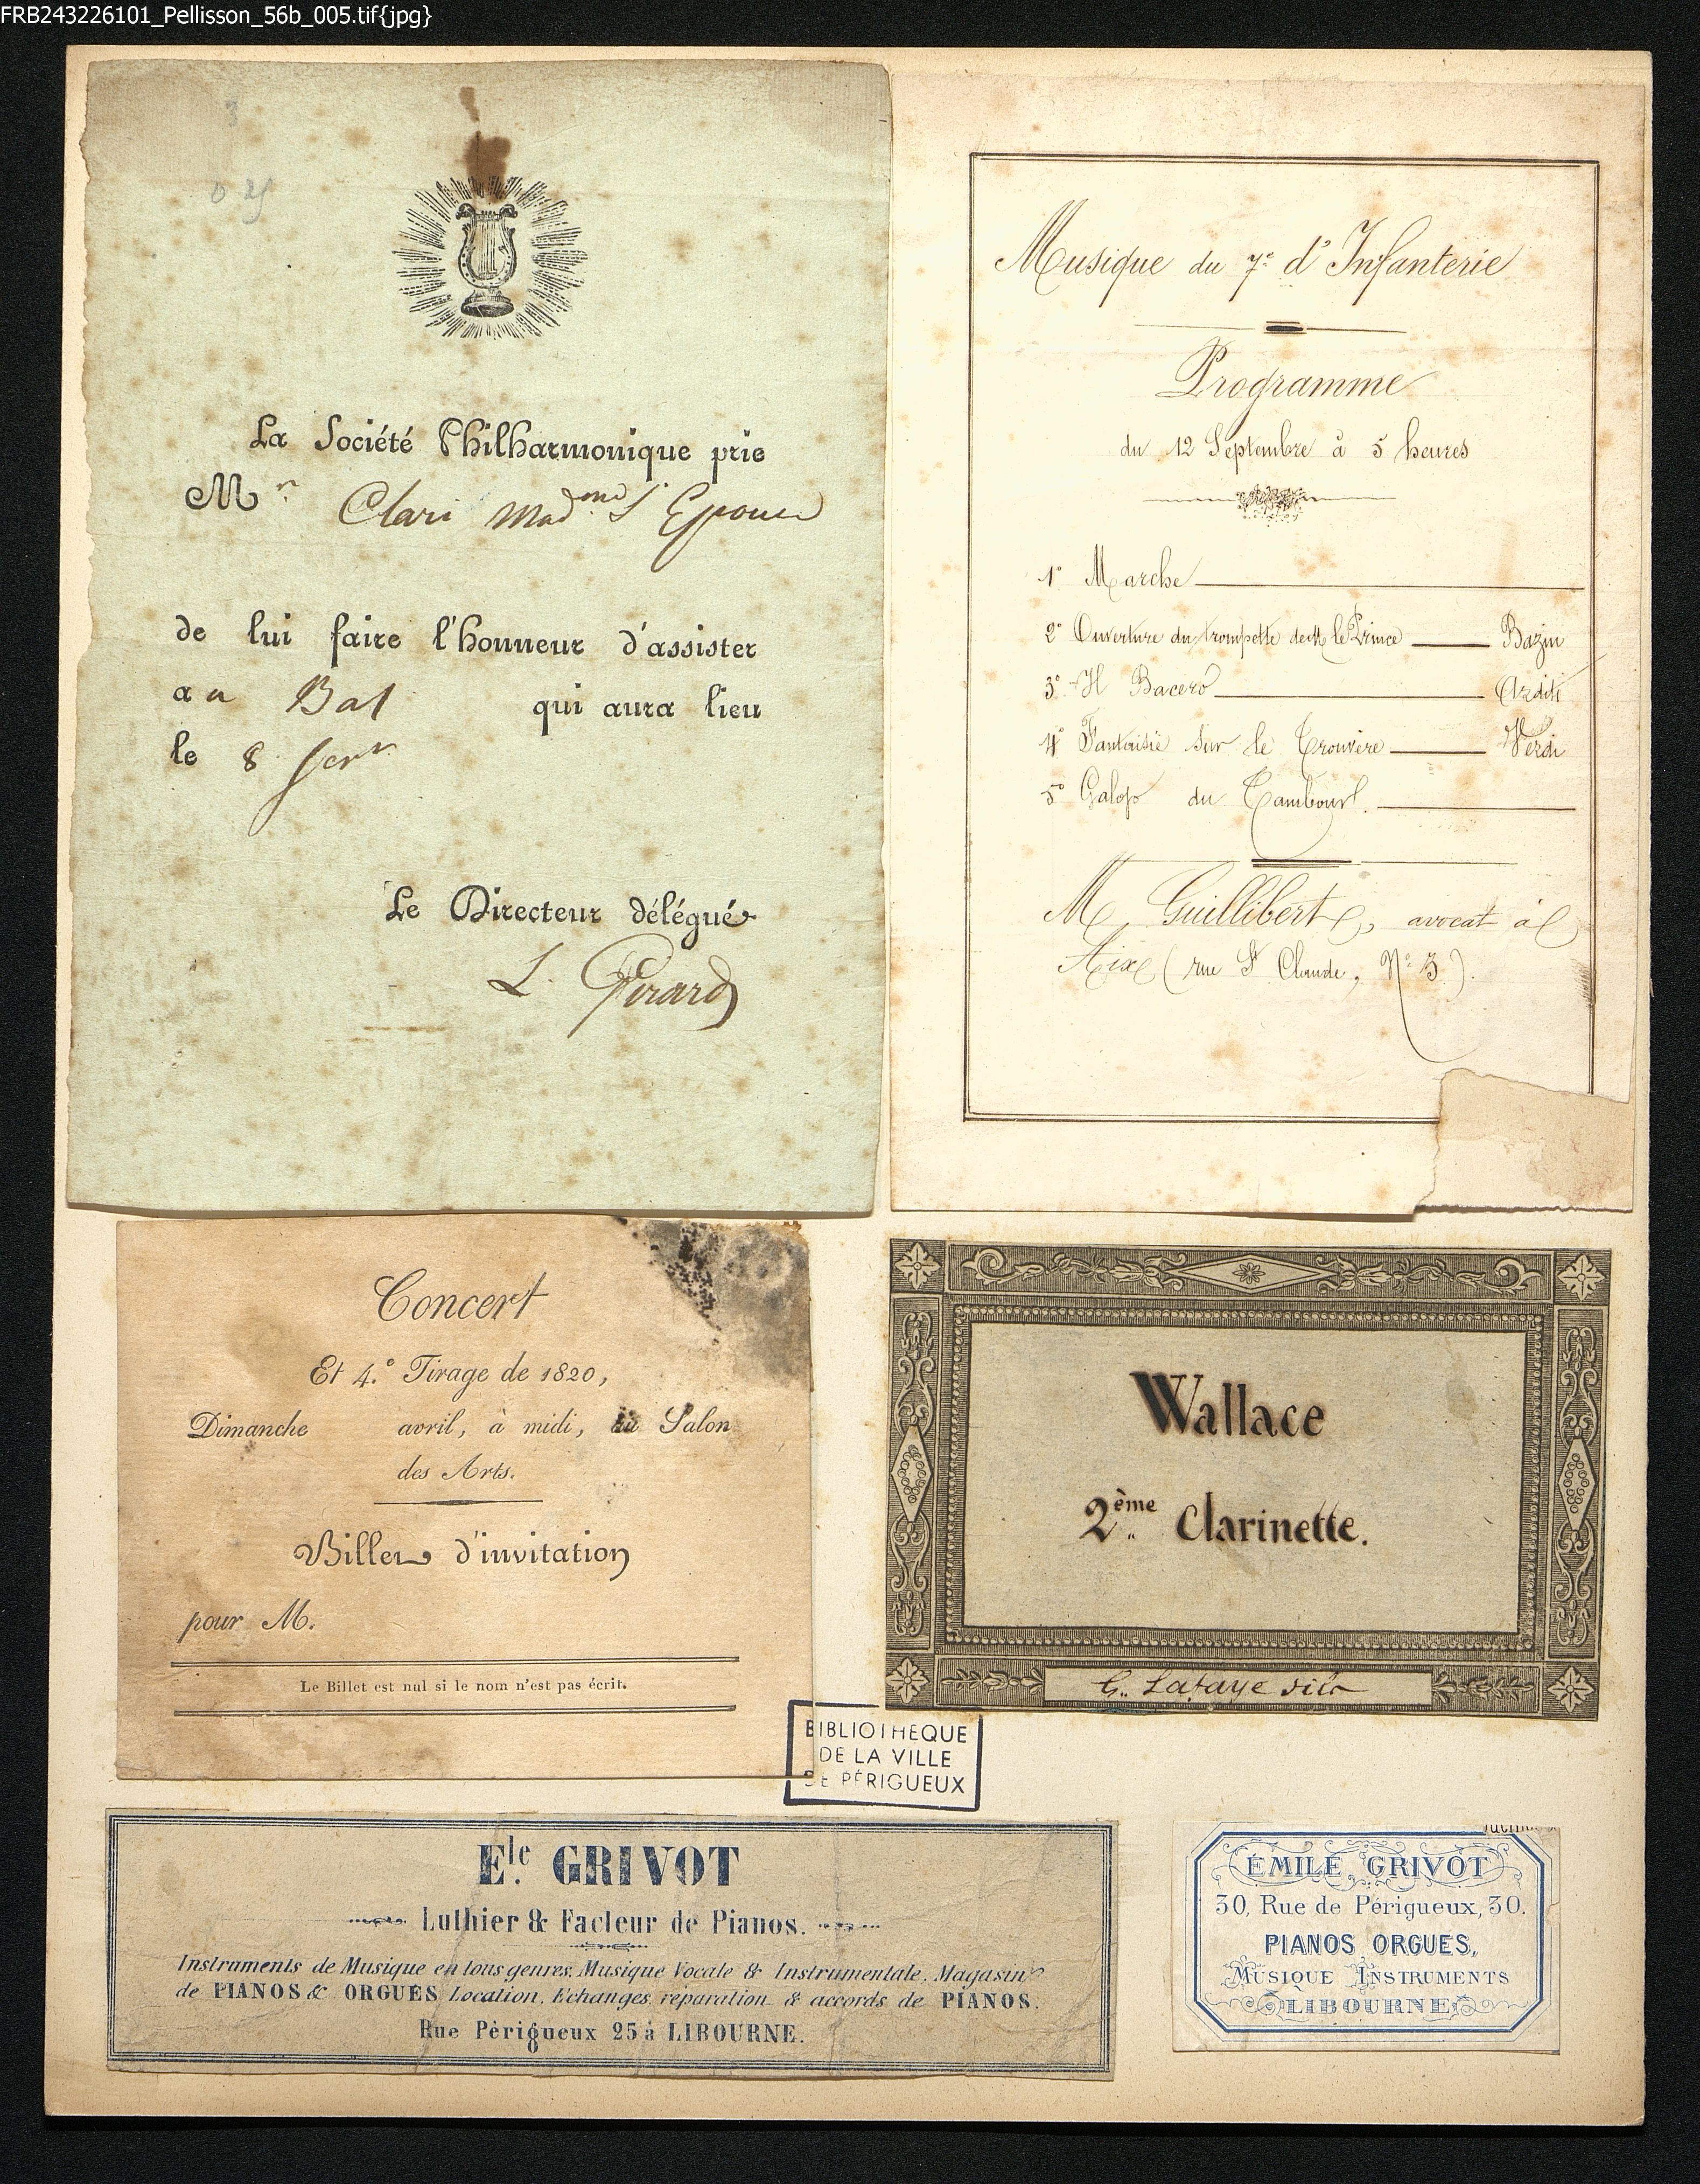 FRB243226101_Pellisson_56b_005.tif{jpg}
La Société Philharmonique prie
Mr Clari Madme S Epouse
de lui faire l'honneur d'assister
au Bal qui aura lieu
le 8 fevr
Le Directeur délégué
L. Pirard
Musique du 7e d'Infanterie
Programme
du 12 Septembre à 5 heures
1° Marche
2° Ouverture du trompette de M le Prince Bazin
3° Il Bacero Arditi
4° Fantaisie sur le Trouvère Verdi
5° Galop du Tambour
M Guillibert, avocat à
Aix (rue St Claude, N° 3).
Concert
Et 4.e Tirage de 1820,
Dimanche avril, à midi, au Salon
des Arts.
Billet d'invitation
pour M.
Le Billet est nul si le nom n'est pas écrit.
Wallace
2ème Clarinette.
G. Lafaye
BIBLIOTHEQUE
DE LA VILLE
DE PÉRIGUEUX
Ele. GRIVOT
Luthier & Facteur de Pianos.
Instruments de Musique en tous genres, Musique Vocale & Instrumentale. Magasin
de PIANOS & ORGUES Location, Echanges, réparation & accords de PIANOS.
Rue Périgueux 25 à LIBOURNE.
ÉMILE GRIVOT
30, Rue de Périgueux, 30.
PIANOS ORGUES,
MUSIQUE INSTRUMENTS
LIBOURNE